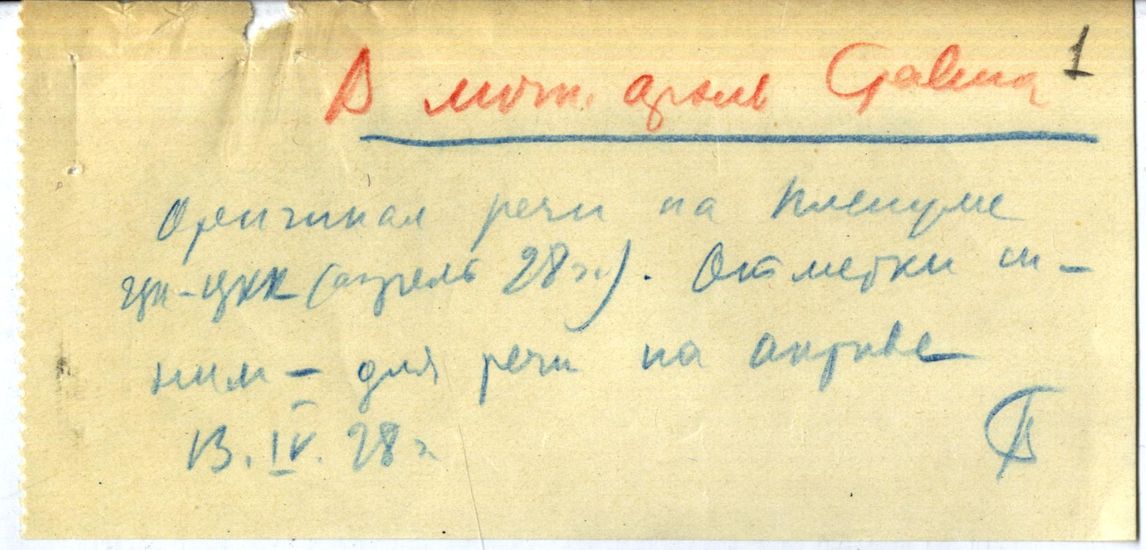 1
В личн. архив Сталина
Оригинал речи на пленуме
ЦК-ЦКК (апрель 28 г.). Отметки си-
ним – для речи на активе
13.IV.28 г.